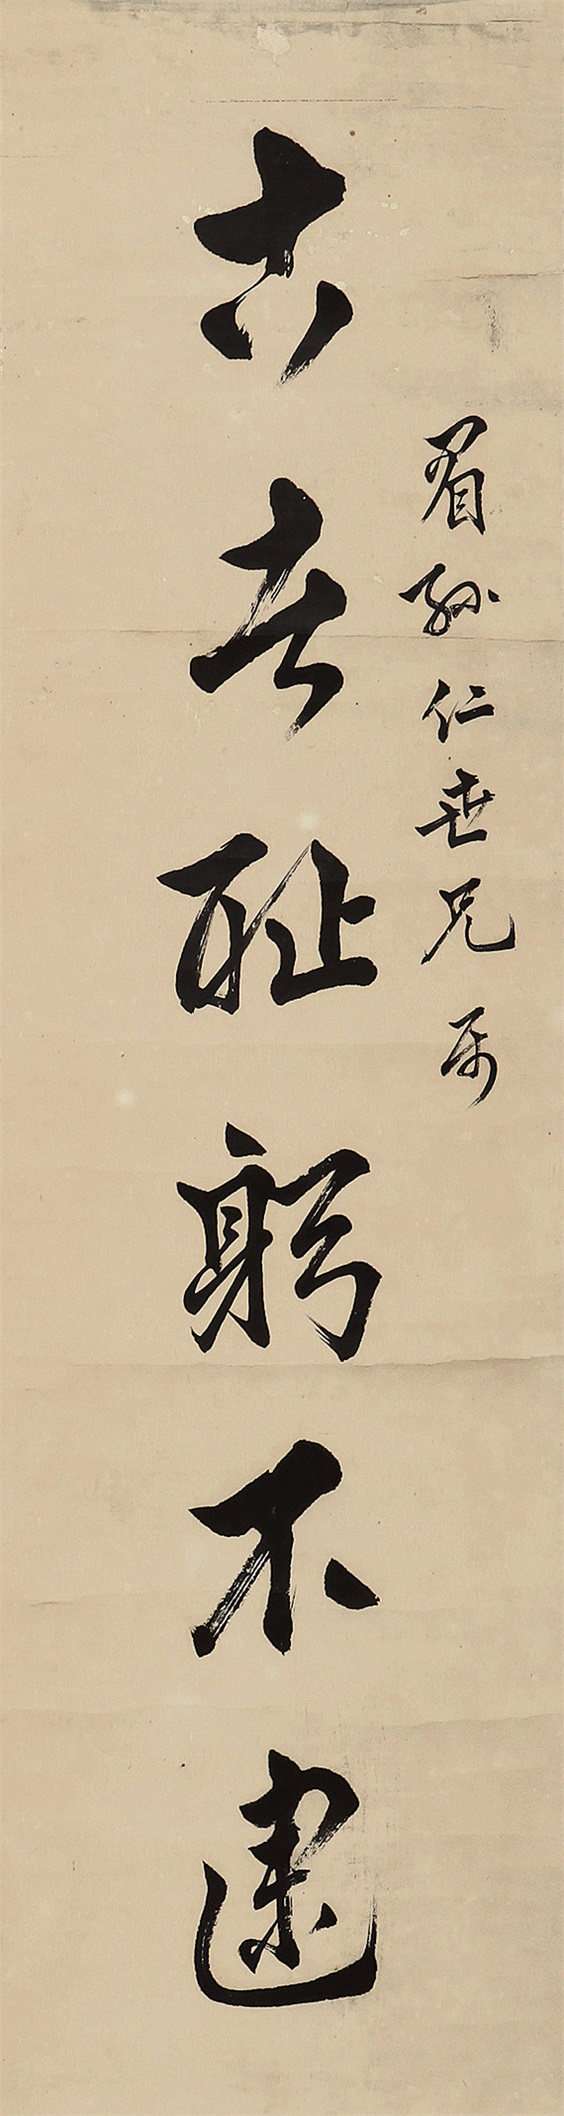 眉孙仁世兄属
古者耻躬不逮